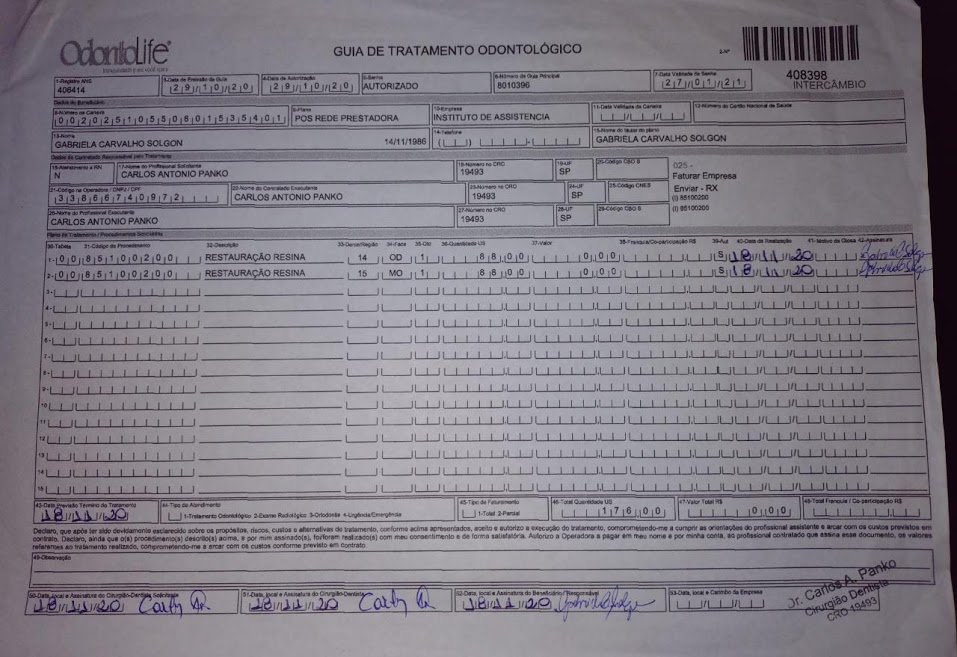 OdontoLife
GUIA DE TRATAMENTO ODONTOLÓGICO
408398
INTERCÂMBIO
1-Registro ANS
406414
3-Data de Emissão da Guia
29/10/20
4-Data de Autorização
29/10/20
5-Senha
AUTORIZADO
6-Número da Guia Principal
8010396
7-Data Validade da Senha
27/01/21
Dados do Beneficiário
8-Número da Carteira
9-Plano
POS REDE PRESTADORA
10-Empresa
INSTITUTO DE ASSISTENCIA
11-Data Validade da Carteira
12-Número do Cartão Nacional de Saúde
13-Nome
GABRIELA CARVALHO SOLGON 14/11/1986
14-Telefone
15-Nome do titular do plano
GABRIELA CARVALHO SOLGON
Dados do Contratado Responsável pelo Tratamento
16-Atendimento a RN
N
17-Nome do Profissional Solicitante
CARLOS ANTONIO PANKO
18-Número no CRO
19493
19-UF
SP
20-Código CBO S
025 -
Faturar Empresa
Enviar - RX
(I) 85100200
(I) 85100200
21-Código na Operadora / CNPJ / CPF
33866740972
22-Nome do Contratado Executante
CARLOS ANTONIO PANKO
23-Número no CRO
19493
24-UF
SP
25-Código CNES
26-Nome do Profissional Executante
CARLOS ANTONIO PANKO
27-Número no CRO
19493
28-UF
SP
29-Código CBO S
Plano de Tratamento / Procedimentos Solicitados
30-Tabela 31-Código do Procedimento 32-Descrição 33-Dente/Região 34-Face 35-Qtd 36-Quantidade US 37-Valor 38-Franquia/Co-participação R$ 39-Aut 40-Data de Realização 41-Motivo da Glosa 42-Assinatura
1- 0085100200 RESTAURAÇÃO RESINA 14 OD 1 8800 000 S 18/11/20
2- 0085100200 RESTAURAÇÃO RESINA 15 MO 1 8800 000 S 18/11/20
3-
4-
5-
6-
7-
8-
9-
10
11
12
13
14
15
43-Data Previsão Término do Tratamento
18/11/20
44-Tipo de Atendimento
1-Tratamento Odontológico 2-Exame Radiológico 3-Ortodontia 4-Urgência/Emergência
45-Tipo de Faturamento
1-Total 2-Parcial
46-Total Quantidade US
17600
47-Valor Total R$
000
48-Total Franquia / Co-participação R$
Declaro, que após ter sido devidamente esclarecido sobre os propósitos, riscos, custos e alternativas de tratamento, conforme acima apresentados, aceito e autorizo a execução do tratamento, comprometendo-me a cumprir as orientações do profissional assistente e arcar com os custos previstos em
contrato. Declaro, ainda que o(s) procedimento(s) descrito(s) acima, e por mim assinado(s), foi/foram realizado(s) com meu consentimento e de forma satisfatória. Autorizo a Operadora a pagar em meu nome e por minha conta, ao profissional contratado que assina esse documento, os valores
referentes ao tratamento realizado, comprometendo-me a arcar com os custos conforme previsto em contrato.
49-Observação
50-Data, local e Assinatura do Cirurgião-Dentista Solicitante
18/11/20
51-Data, local e Assinatura do Cirurgião-Dentista
18/11/20
52-Data, local e Assinatura do Beneficiário / Responsável
18/11/20
53-Data, local e Carimbo da Empresa
Dr. Carlos A. Panko
Cirurgião Dentista
CRO 19493